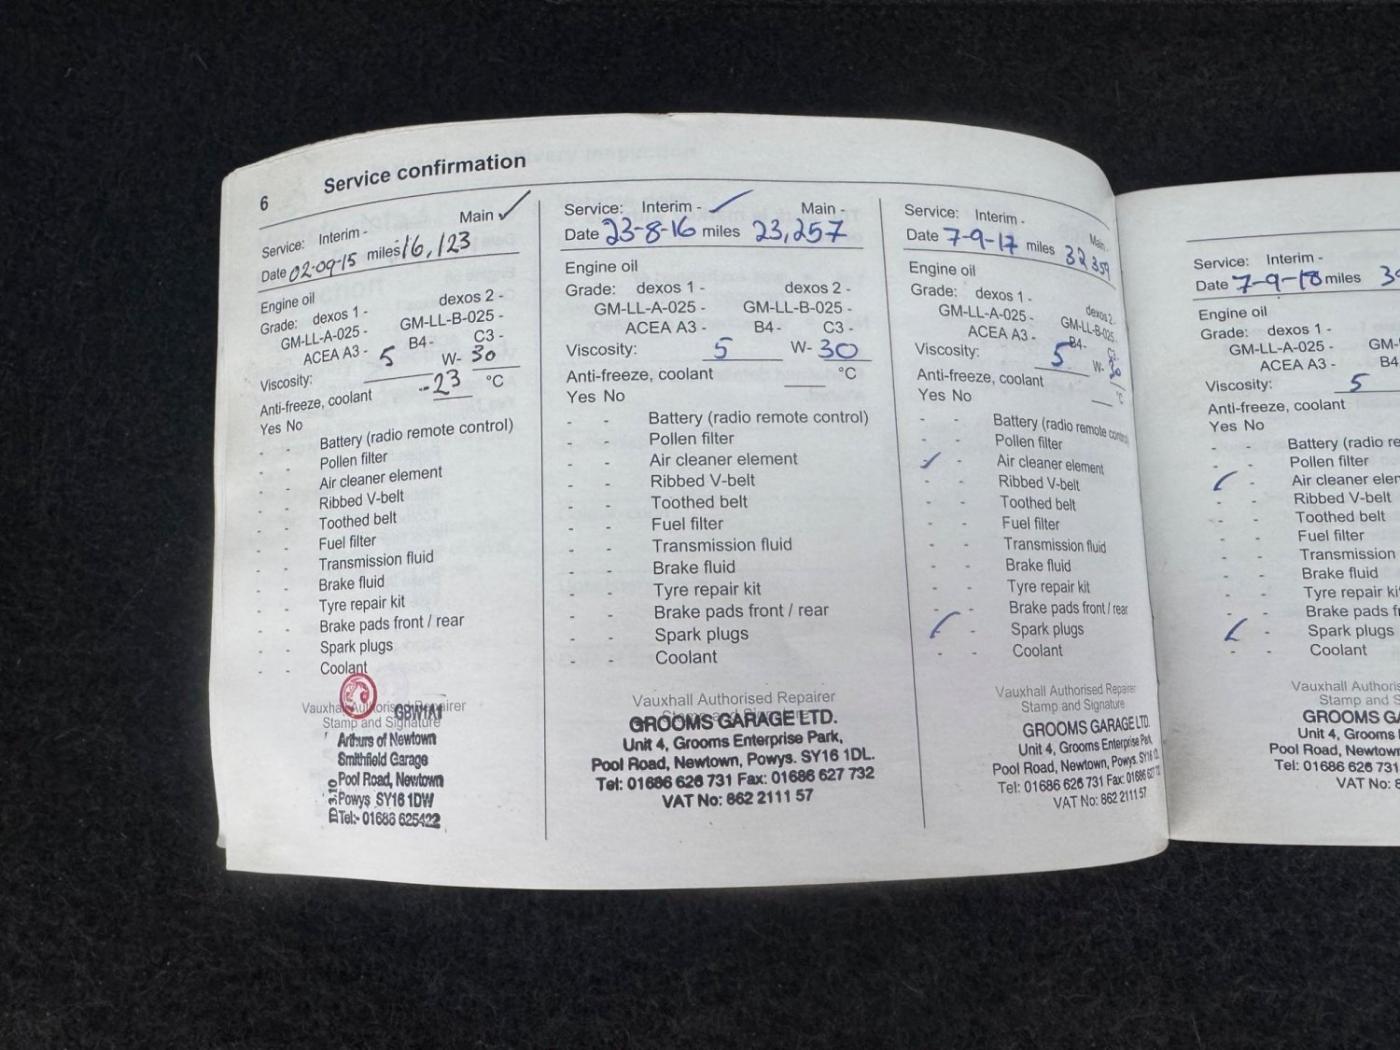 6
Service confirmation
Service: Interim - Main ✓
Date 02-09-15 miles 16,123
Engine oil
Grade: dexos 1 - dexos 2 -
GM-LL-A-025 - GM-LL-B-025 -
ACEA A3 - B4 - C3 -
Viscosity: 5 W- 30
Anti-freeze, coolant -23 °C
Yes No
- - Battery (radio remote control)
- - Pollen filter
- - Air cleaner element
- - Ribbed V-belt
- - Toothed belt
- - Fuel filter
- - Transmission fluid
- - Brake fluid
- - Tyre repair kit
- - Brake pads front / rear
- - Spark plugs
- - Coolant
Vauxhall Authorised Repairer
GBW1A1
Stamp and Signature
Arthurs of Newtown
Smithfield Garage
Pool Road, Newtown
Powys SY16 1DW
Tel:- 01686 625422
Service: Interim - ✓ Main -
Date 23-8-16 miles 23,257
Engine oil
Grade: dexos 1 - dexos 2 -
GM-LL-A-025 - GM-LL-B-025 -
ACEA A3 - B4 - C3 -
Viscosity: 5 W- 30
Anti-freeze, coolant °C
Yes No
- - Battery (radio remote control)
- - Pollen filter
- - Air cleaner element
- - Ribbed V-belt
- - Toothed belt
- - Fuel filter
- - Transmission fluid
- - Brake fluid
- - Tyre repair kit
- - Brake pads front / rear
- - Spark plugs
- - Coolant
Vauxhall Authorised Repairer
Stamp and Signature
GROOMS GARAGE LTD.
Unit 4, Grooms Enterprise Park,
Pool Road, Newtown, Powys. SY16 1DL.
Tel: 01686 626 731 Fax: 01686 627 732
VAT No: 862 2111 57
Service: Interim - Main -
Date 7-9-17 miles 32359
Engine oil
Grade: dexos 1 - dexos 2 -
GM-LL-A-025 - GM-LL-B-025 -
ACEA A3 - B4 - C3 -
Viscosity: 5 W- 30
Anti-freeze, coolant °C
Yes No
- - Battery (radio remote control)
- - Pollen filter
✓ - Air cleaner element
- - Ribbed V-belt
- - Toothed belt
- - Fuel filter
- - Transmission fluid
- - Brake fluid
- - Tyre repair kit
- - Brake pads front / rear
✓ - Spark plugs
- - Coolant
Vauxhall Authorised Repairer
Stamp and Signature
GROOMS GARAGE LTD.
Unit 4, Grooms Enterprise Park,
Pool Road, Newtown, Powys. SY16
Tel: 01686 626 731 Fax: 01686 627
VAT No: 862 2111 57
Service: Interim -
Date 7-9-18 miles
Engine oil
Grade: dexos 1 -
GM-LL-A-025 - GM-
ACEA A3 - B4
Viscosity: 5
Anti-freeze, coolant
Yes No
- - Battery (radio re
- - Pollen filter
✓ - Air cleaner elem
- - Ribbed V-belt
- - Toothed belt
- - Fuel filter
- - Transmission
- - Brake fluid
- - Tyre repair ki
- - Brake pads f
✓ - Spark plugs
- - Coolant
Vauxhall Authoris
Stamp and S
GROOMS GA
Unit 4, Grooms
Pool Road, Newtown
Tel: 01686 626 731
VAT No: 8